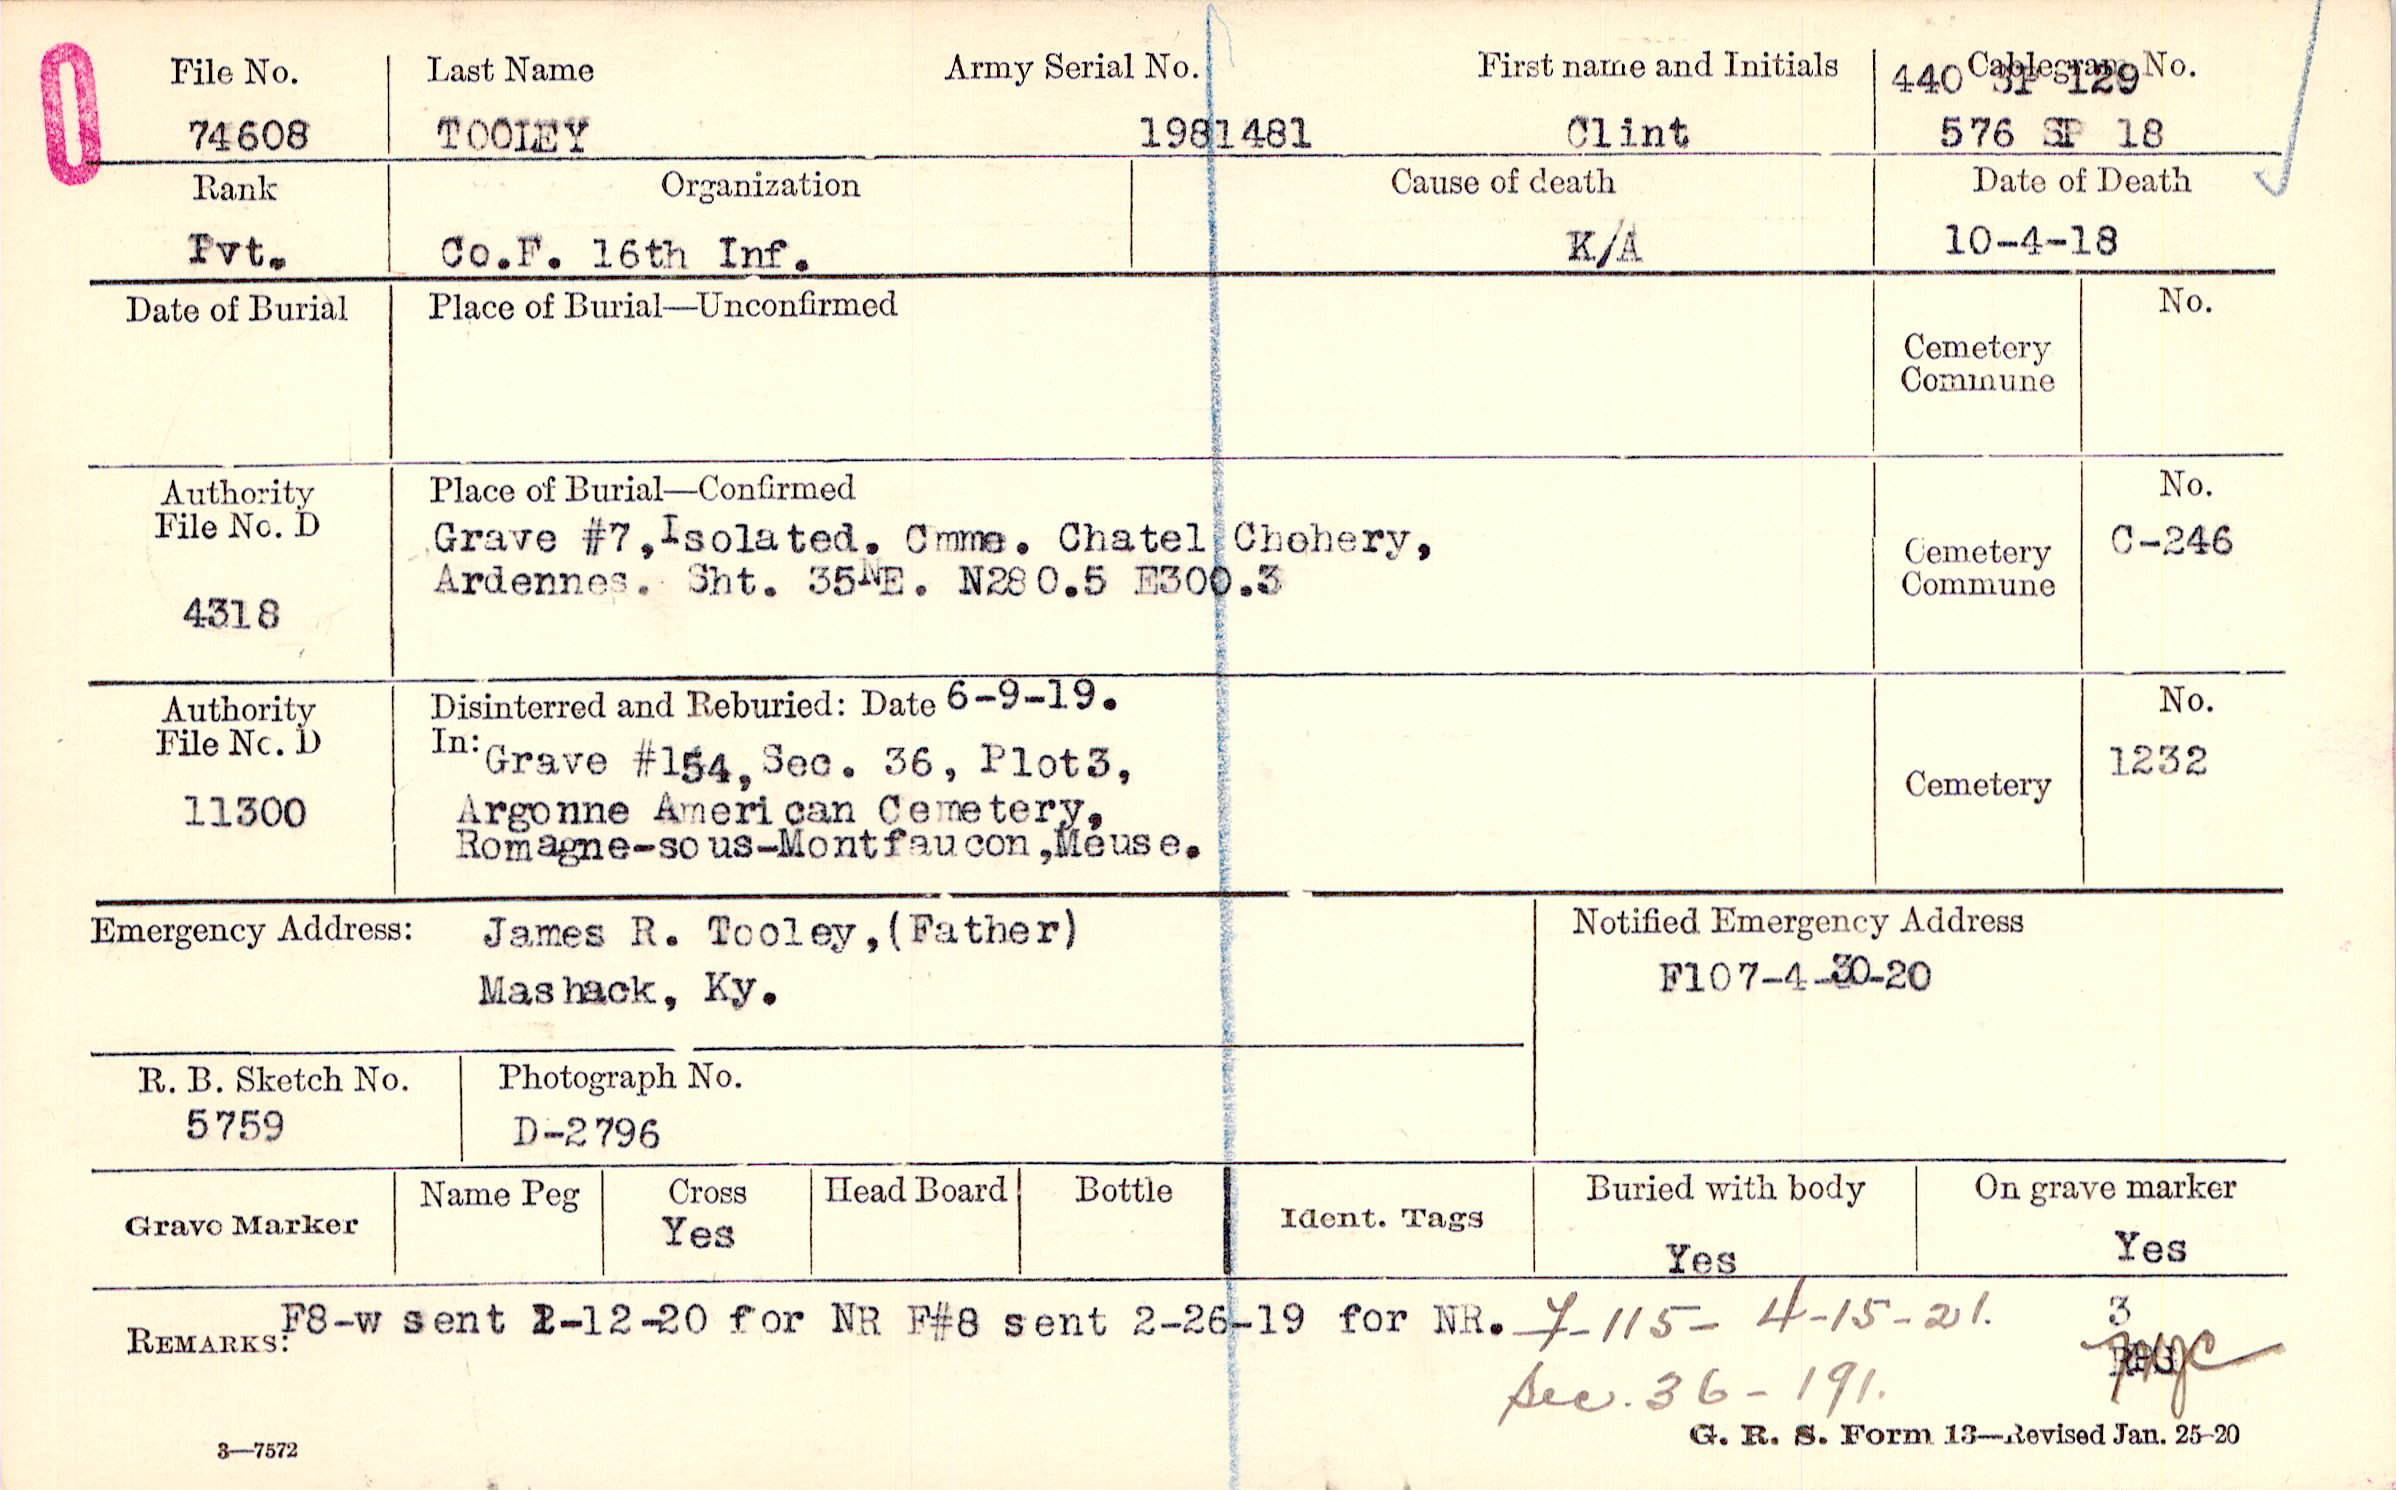 File No. Last Name Army Serial No. First name and Initials Cablegram No.
440 SP 129
74608 TOOLEY 1981481 Clint 576 SP 18
Rank Organization Cause of death Date of Death
Pvt. Co.F. 16th Inf. K/A 10-4-18
Date of Burial Place of Burial—Unconfirmed No.
Cemetery
Commune
Authority Place of Burial—Confirmed No.
File No. D Grave #7,Isolated. Cmme. Chatel Chehery, C-246
Cemetery
Ardennes. Sht. 35NE. N280.5 E300.3 Commune
4318
Authority Disinterred and Reburied: Date 6-9-19. No.
File No. D In: Grave #154, Sec. 36, Plot3, 1232
Cemetery
11300 Argonne American Cemetery,
Romagne-sous-Montfaucon,Meuse.
Emergency Address: James R. Tooley,(Father) Notified Emergency Address
Mashack, Ky. F107-4-30-20
R. B. Sketch No. Photograph No.
5759 D-2796
Grave Marker Name Peg Cross Head Board Bottle Ident. Tags Buried with body On grave marker
Yes Yes Yes
REMARKS: F8-w sent 2-12-20 for NR F#8 sent 2-26-19 for NR. 7-115- 4-15-21. 3
Sec. 36-191.
3—7572 G. R. S. Form 13—Revised Jan. 25-20